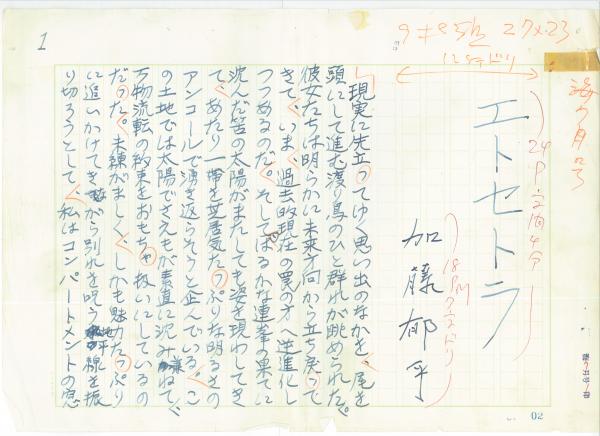 1
9ポ85h 27×23
12行ドリ
海7月号
エトセトラ
24P 字間4分
加藤郁乎
現実に先立ってゆく思い出のなかを、尾を
頭にして進む渡り鳥のひと群れが眺められた。
彼女たちは明らかに未来方向から立ち戻って
きて、いま、過去的現在の罠の方へ逆進化し
つつあるのだ。そしてはるかな連峯の果てに
沈んだ筈の太陽がまたしても姿を現わしてき
て、あたり一帯を芝居気たっぷりな明るさの
アンコールで湧き返らそうと企んでいる。こ
の土地では太陽でさえもが素直に沈み兼ねて、
万物流転の約束をおもちゃ扱いにしているの
だった。未練がましく、しかも魅力たっぷり
に追いかけてきながら別れを呪う地平線を振
り切ろうとして、私はコンパートメントの窓
02